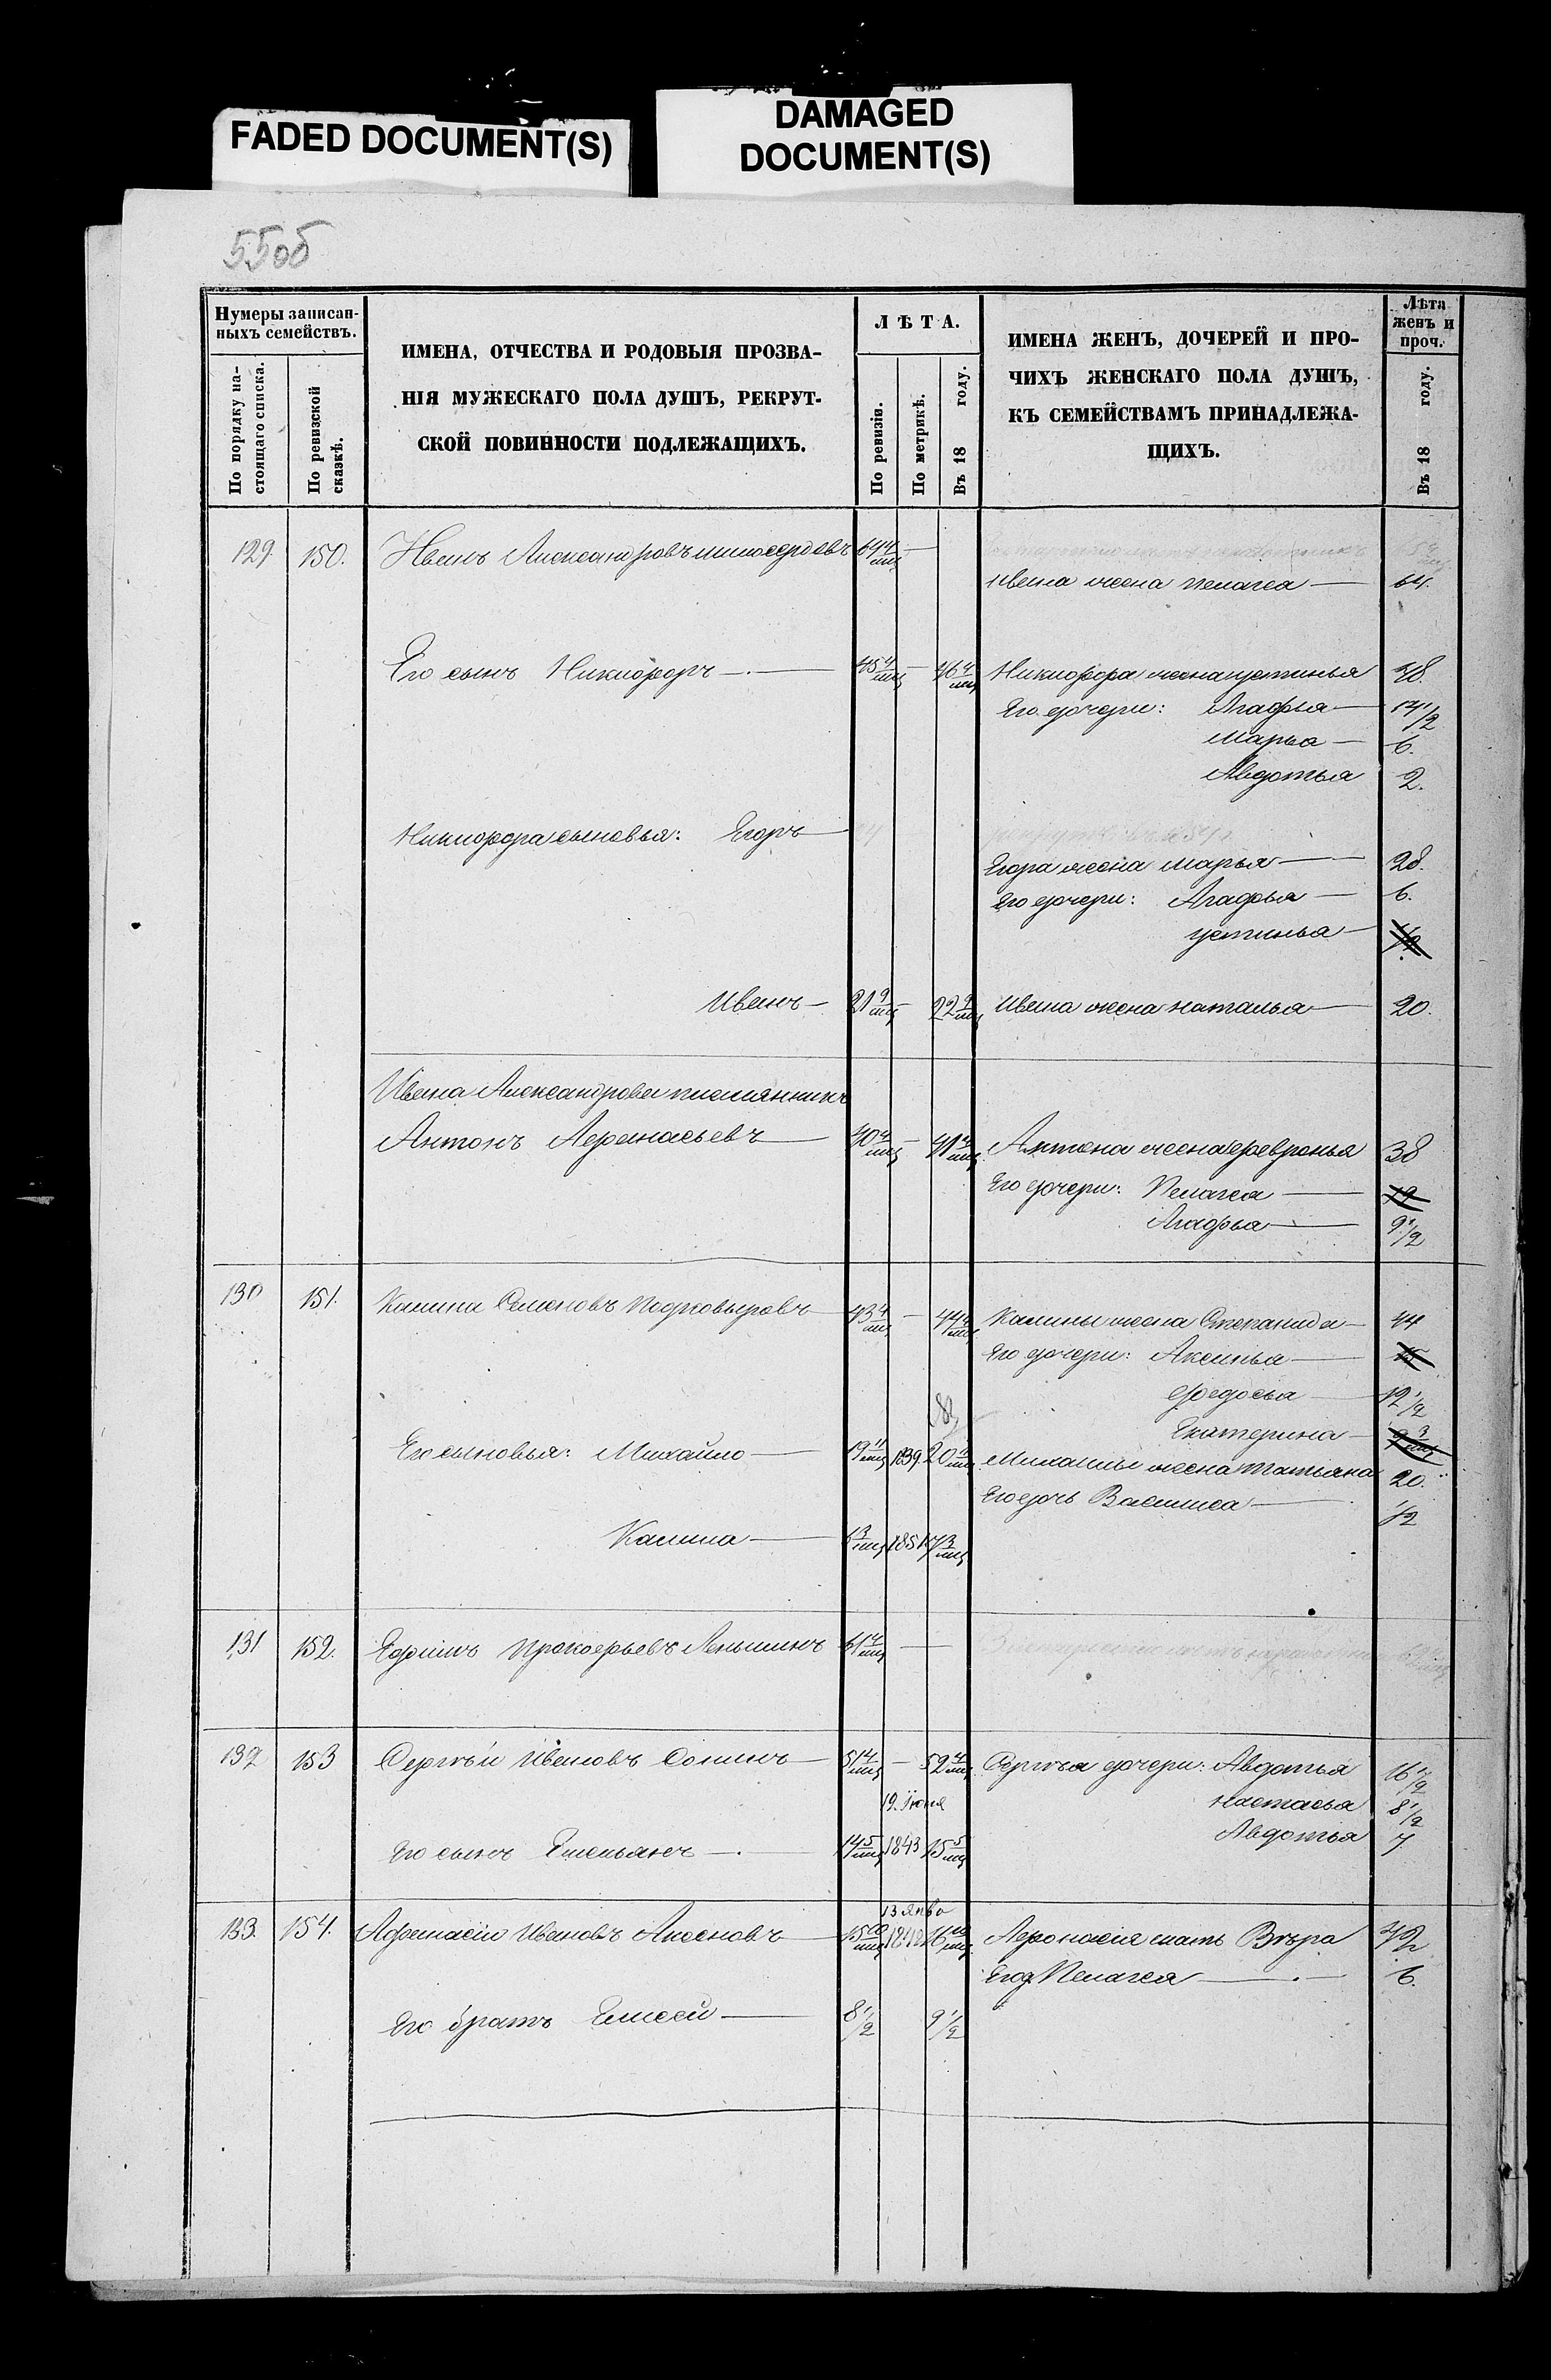 FADED DOCUMENT(S)
DAMAGED
DOCUMENT(S)
55об
Нумеры записан-
ныхъ семействъ.
По порядку на-
стоящаго списка.
По ревизской
сказкѣ.
ИМЕНА, ОТЧЕСТВА И РОДОВЫЯ ПРОЗВА-
НІЯ МУЖЕСКАГО ПОЛА ДУШЪ, РЕКРУТ-
СКОЙ ПОВИННОСТИ ПОДЛЕЖАЩИХЪ.
ЛѢТА.
По ревизіи.
По метрикѣ.
Въ 18 году.
ИМЕНА ЖЕНЪ, ДОЧЕРЕЙ И ПРО-
ЧИХЪ ЖЕНСКАГО ПОЛА ДУШЪ,
КЪ СЕМЕЙСТВАМЪ ПРИНАДЛЕЖА-
ЩИХЪ.
Лѣта
женъ и
проч.
Въ 18 году.
129 150. Иванъ Александровъ Милосердовъ 64 4/мц —
Ивана жена Пелагея — 64.
Его сынъ Никифоръ — 45 4/мц — 46 4/мц Никифора жена Устинья 48.
Его дочери: Агафья — 14 1/2
Марья — 6.
Авдотья 2.
Никифора сыновья: Егоръ —
Егора жена Марья — 28.
Его дочери: Агафья — 6.
Устинья —
Иванъ — 21 9/мц — 22 9/мц Ивана жена Наталья — 20.
Ивана Александрова племянникъ
Антонъ Афанасьевъ — 40 4/мц — 41 4/мц Антона жена Февронья 38
Его дочери: Пелагея — 19
Агафья — 9 1/2
130 151. Калина Семеновъ 43 4/мц — 44 4/мц Калины жена Степанида — 44
Его дочери: Аксинья — 15
Федосья — 12 1/2
Екатерина — 9 3/мц
Его сыновья: Михайло — 19 11/мц 1839 20 11/мц Михайлы жена Татьяна 20.
Его дочь Василиса — 1/2
Калина — 6 3/мц 1851 7 3/мц
131 152. Ефимъ Прокофьевъ Леньшинъ 61 4/мц —
132 153 Сергѣй Ивановъ Сонинъ — 51 4/мц — 52 4/мц Сергѣя дочери: Авдотья 16 1/2
19. Іюня Настасья 8 1/2
Его сынъ Емельянъ — 14 5/мц 1843 15 5/мц Авдотья 7
13 Янва
133. 154. Афанасій Ивановъ Аксеновъ — 15 10/мц 1842 16 10/мц Афонасія мать Вѣра 42
Его д. Пелагея — 6.
Его братъ Елисей — 8 1/2 9 1/2